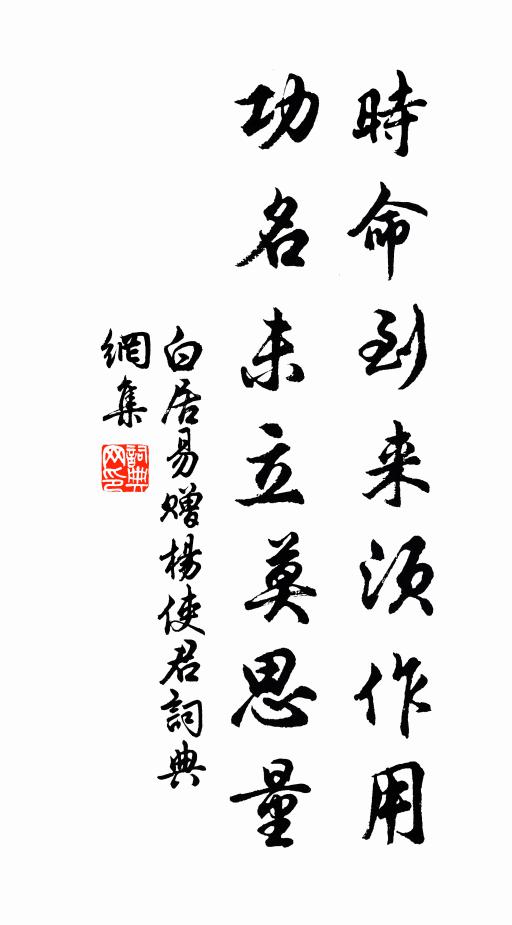 時命到来須作用
功名未立莫思量
白居易贈楊使君詞典
網集
詞典
网印